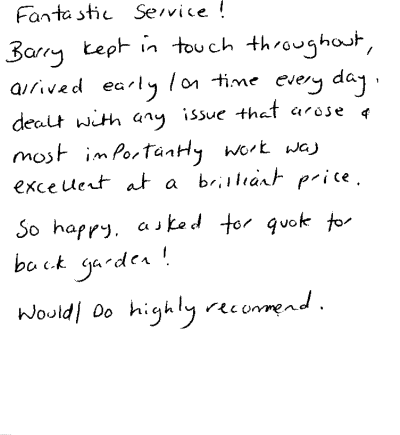 Fantastic Service!
Barry kept in touch throughout,
arrived early / on time every day.
dealt with any issue that arose &
most importantly work was
excellent at a brilliant price.
So happy, asked for quote for
back garden!
Would/Do highly recommend.